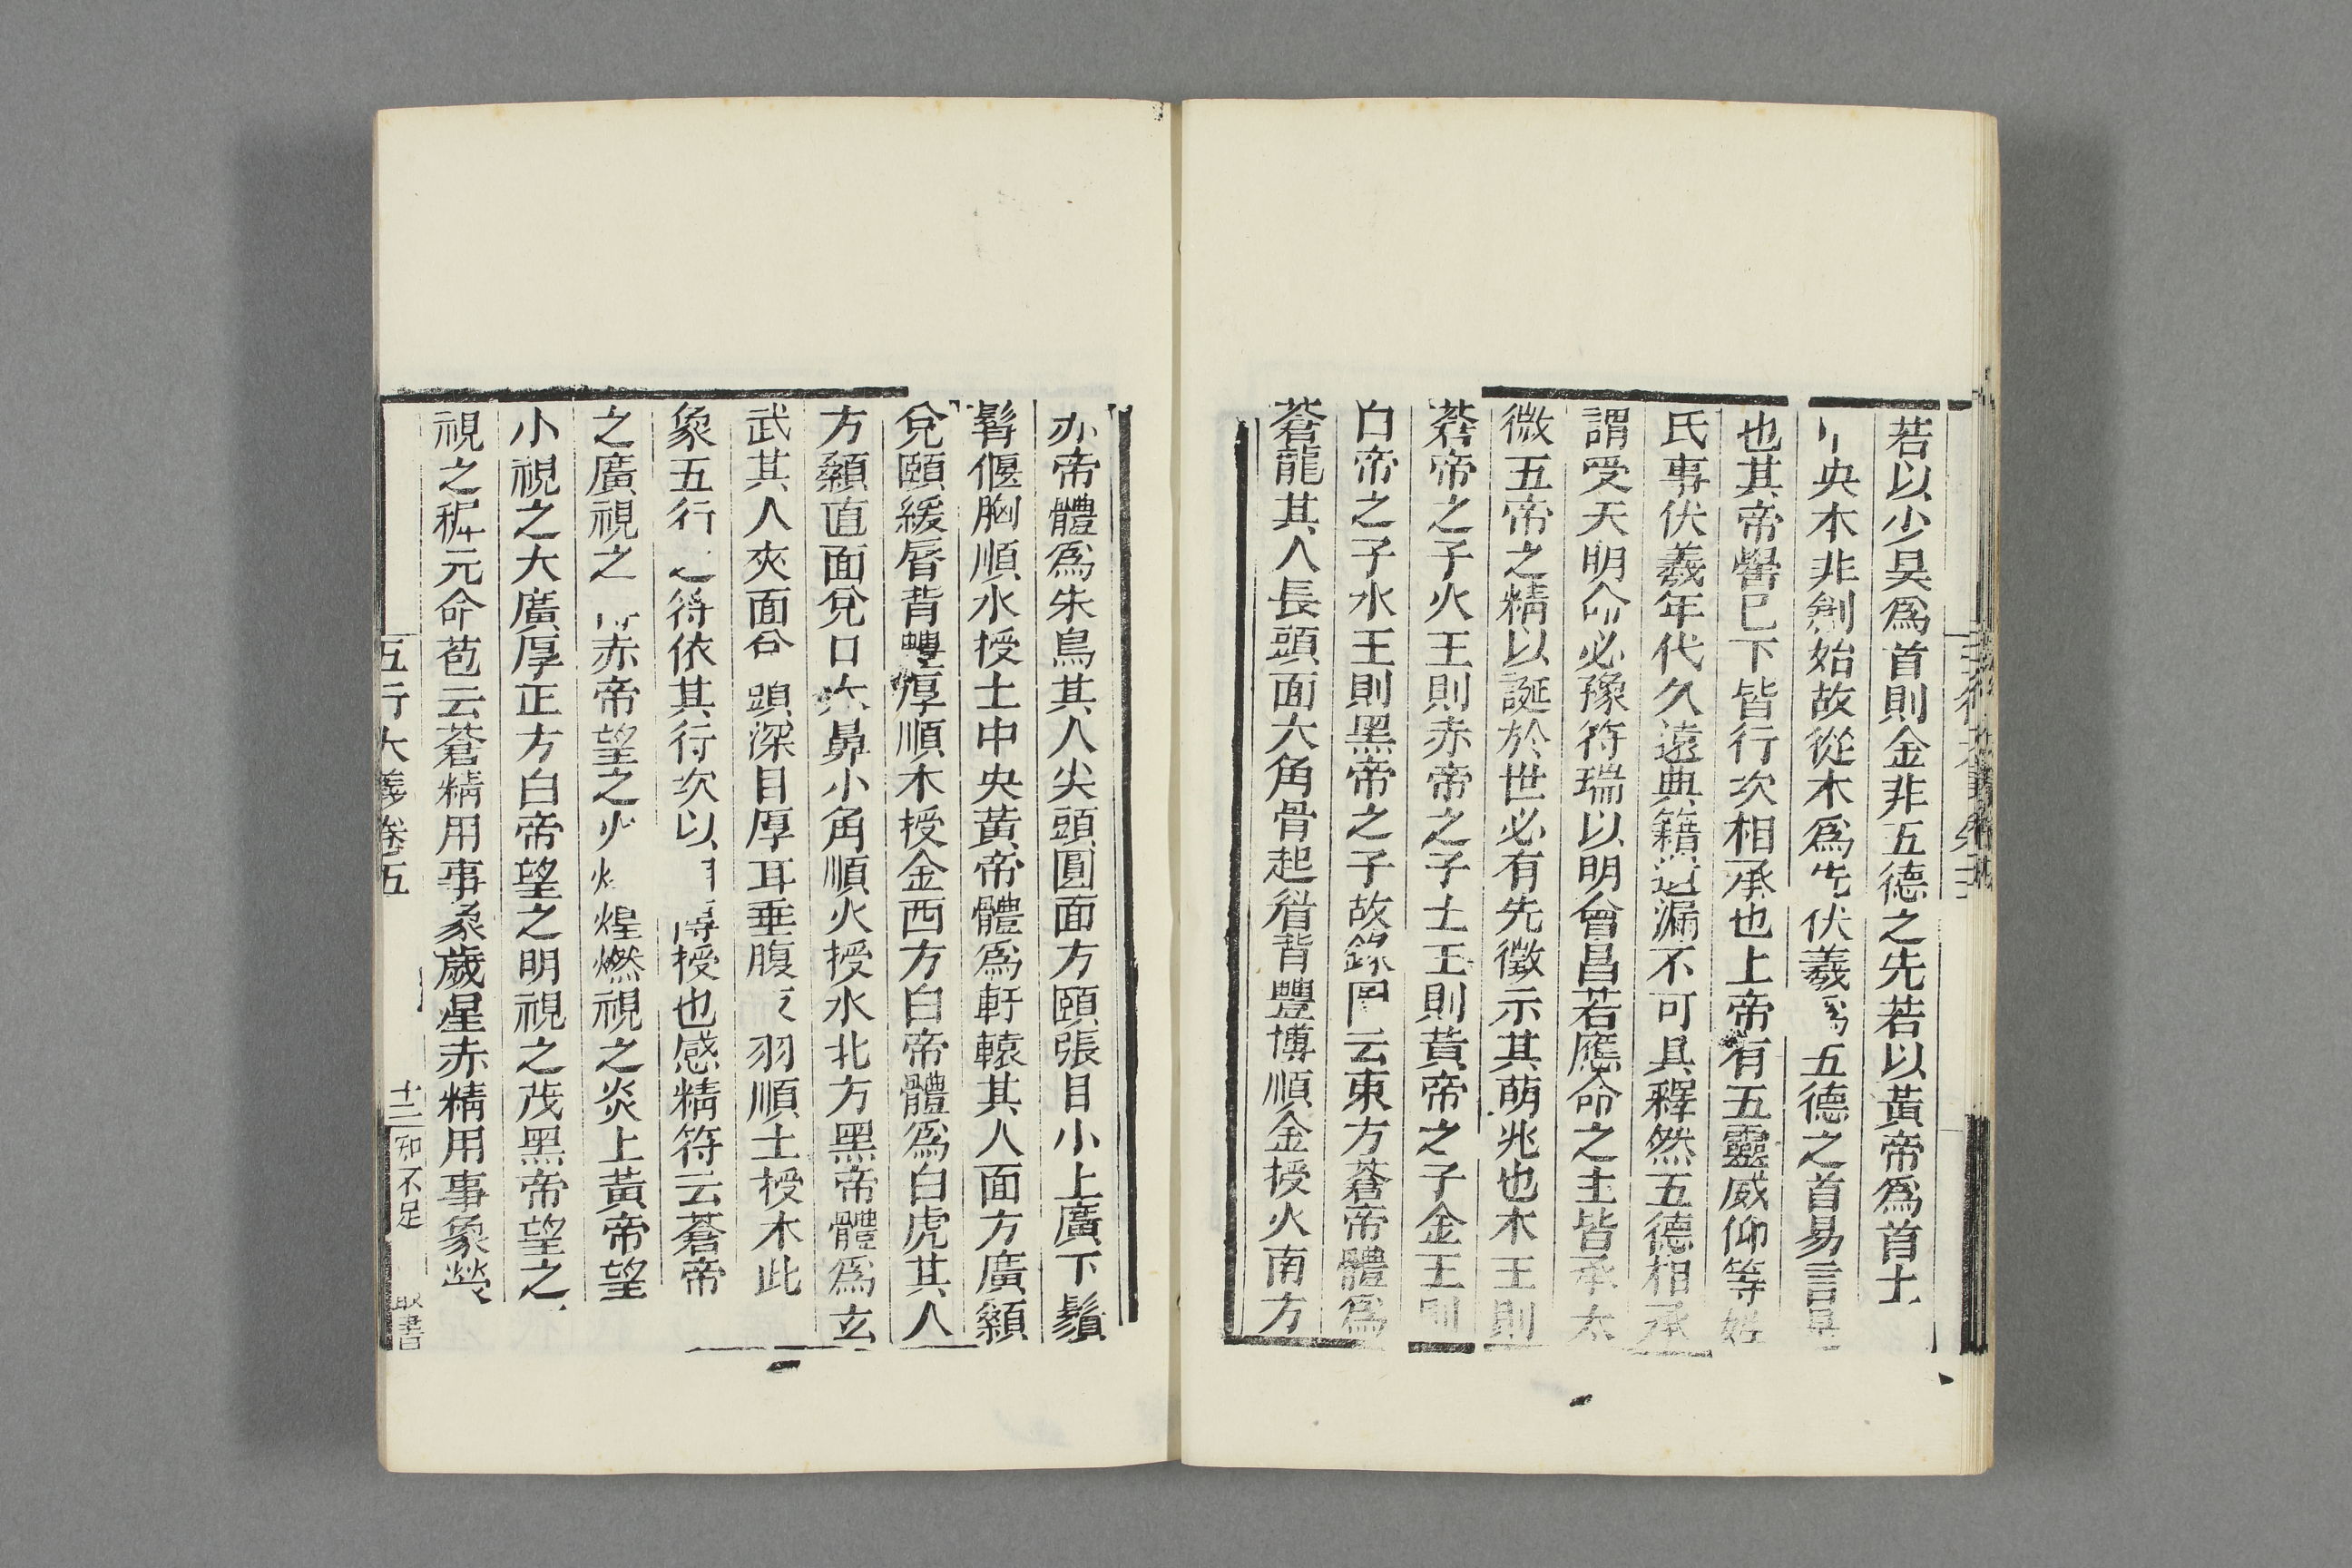 若以少昊爲首則金非五德之先若以黃帝爲首土
央木非創始故從木爲先伏羲爲五德之首易言是
也其帝嚳已下皆行次相承也上帝有五靈威仰等始
氏事伏羲年代久遠典籍遺漏不可具釋然五德相承
謂受天明命必豫符瑞以明會昌若應命之主皆承太
微五帝之精以誕於世必有先徵示其萌兆也木王則
蒼帝之子火王則赤帝之子土王則黃帝之子金王則
白帝之子水王則黑帝之子故錄圖云東方蒼帝體爲
蒼龍其人長頭面大角骨起眉背豐博順金授火南方
赤帝體爲朱鳥其人尖頭圓面方頤張目小上廣下鬚
髯偃胸順水授土中央黃帝體爲軒轅其人面方廣顙
兌頤緩脣背豐厚順木授金西方白帝體爲白虎其人
方顙直面兌口大鼻小角順火授水北方黑帝體爲玄
武其人夾面兌頭深目厚耳垂腹反羽順土授木此
象五行之符依其行次以相傳授也感精符云蒼帝
之廣視之赤帝望之火煌燃視之炎上黃帝望
小視之大廣厚正方白帝望之明視之茂黑帝望之
視之元命苞云蒼精用事象歲星赤精用事象熒
五行大義卷五
十二
知不足